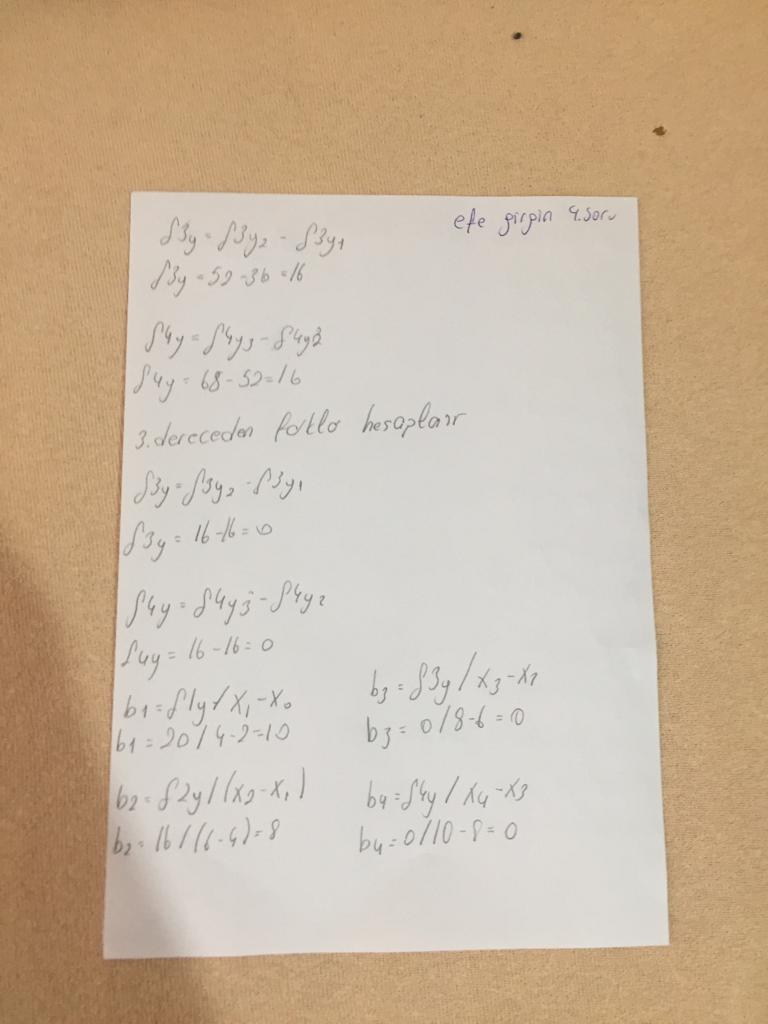 efe girgin 4.soru
δ3y = δ3y₂ - δ3y₁
δ3y = 52 - 36 = 16
δ4y = δ4y₃ - δ4y₂
δ4y = 68 - 52 = 16
3.dereceden farklar hesaplanır
δ3y = δ3y₂ - δ3y₁
δ3y = 16 - 16 = 0
δ4y = δ4y₃ - δ4y₂
δ4y = 16 - 16 = 0
b1 = δ1y / x₁ - x₀
b1 = 20 / 4 - 2 = 10
b₂ = δ2y / (x₂ - x₁)
b₂ = 16 / (6 - 4) = 8
b₃ = δ3y / x₃ - x₂
b3 = 0 / 8 - 6 = 0
b4 = δ4y / x4 - x3
b4 = 0 / 10 - 8 = 0